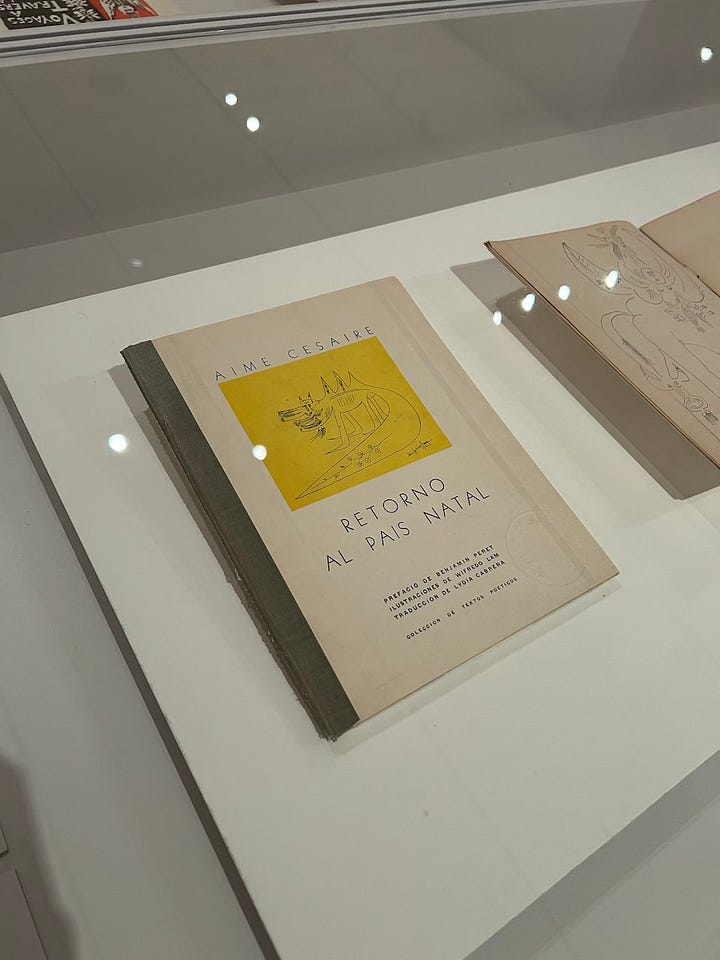 VOYAGES
& TRAVERS
AIME CESAIRE
RETORNO
AL PAIS NATAL
PREFACIO DE BENJAMIN PERET
ILUSTRACIONES DE WIFREDO LAM
TRADUCCION DE LYDIA CABRERA
COLECCION DE TEXTOS POETICOS